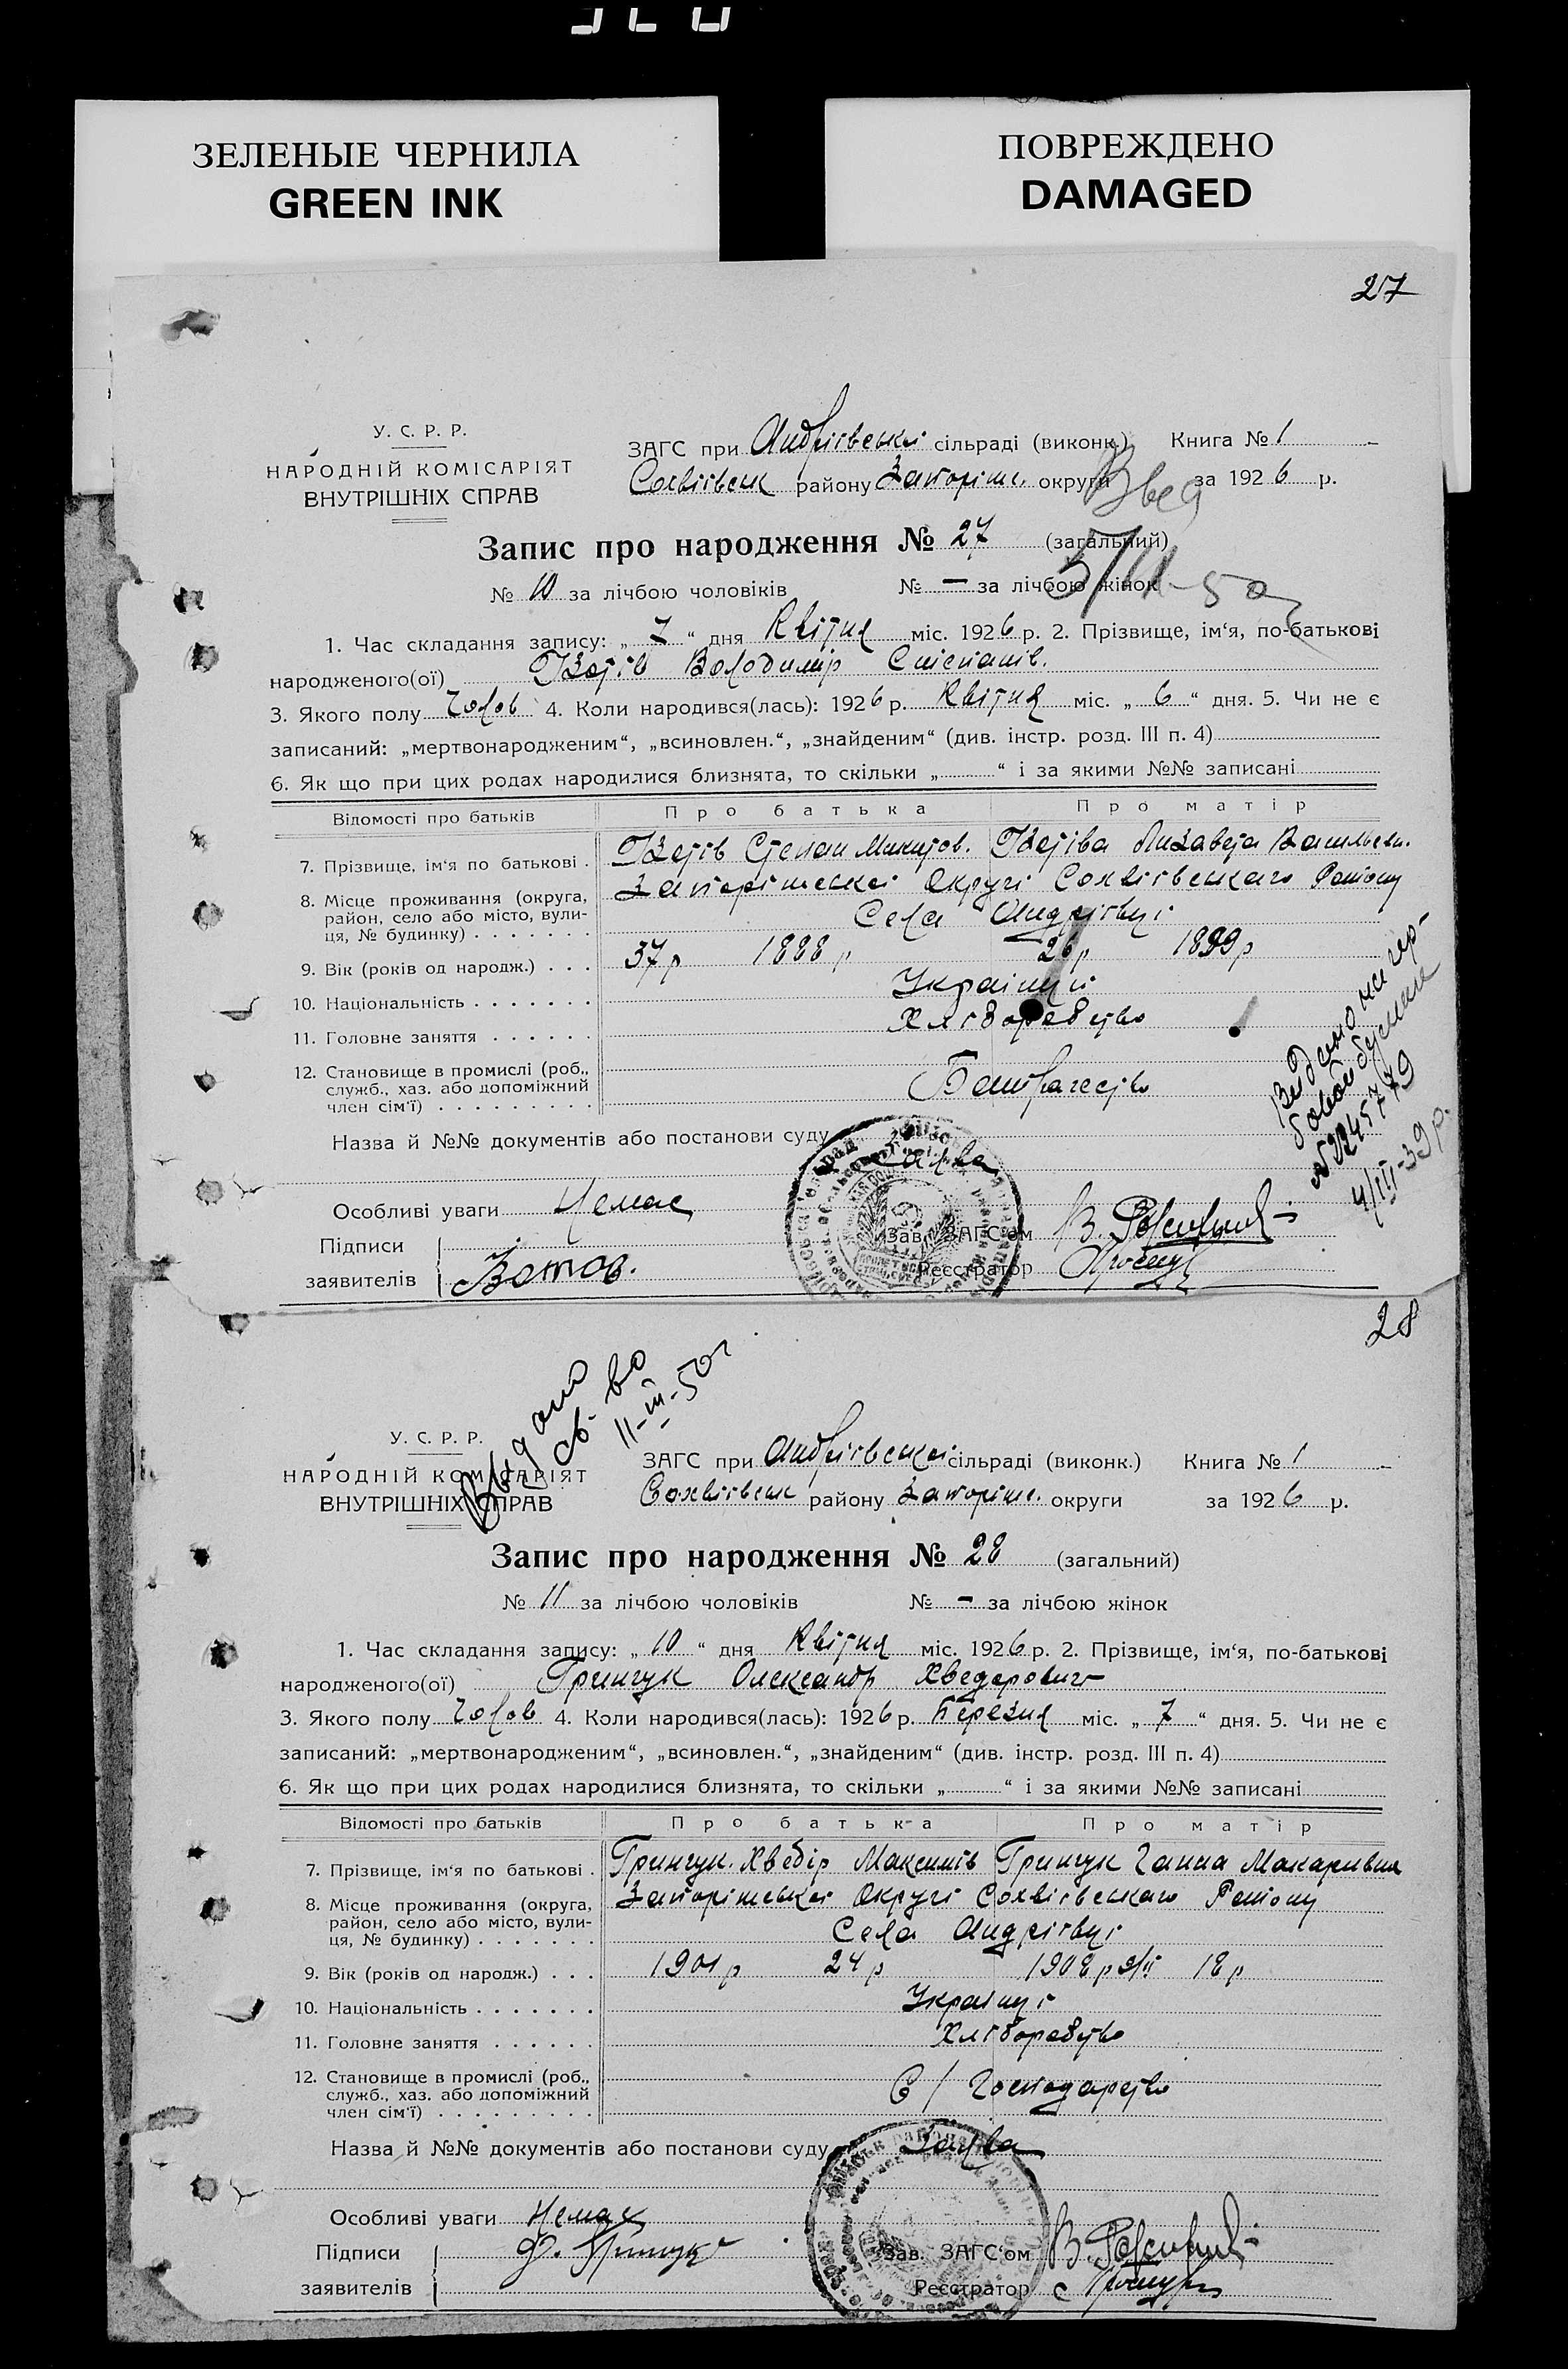 ЗЕЛЕНЫЕ ЧЕРНИЛА
GREEN INK
ПОВРЕЖДЕНО
DAMAGED
27
У. С. Р. Р.
НАРОДНІЙ КОМІСАРІЯТ
ВНУТРІШНІХ СПРАВ
ЗАГС при Андріївської сільраді (виконк.) Книга № 1
Софіївськ району Запоріж. округи за 1926 р.
Запис про народження № 27 (загальний)
№ 10 за лічбою чоловіків № — за лічбою жінок
1. Час складання запису: „ 7 “ дня Квітня міс. 1926 р. 2. Прізвище, ім‘я, по-батькові
народженого(ої) Володимір Степанів.
3. Якого полу Чолов 4. Коли народився(лась): 1926 р. Квітня міс. „ 6 “ дня. 5. Чи не є
записаний: „мертвонародженим“, „всиновлен.“, „знайденим“ (див. інстр. розд. III п. 4)
6. Як що при цих родах народилися близнята, то скільки „ “ і за якими №№ записані
Відомості про батьків Про батька Про матір
7. Прізвище, ім‘я по батькові . Степан Микитов. Лизавета Васильевн.
8. Місце проживання (округа, район, село або місто, вулиця, № будинку) Запоріжської Округі Сохвіівського Раиону
Села Андріївці
9. Вік (років од народж.) . . . 37 р 1888 р 26 р 1899 р
10. Національність . . . . . . . Українці
11. Головне заняття . . . . . . Хліборобство
12. Становище в промислі (роб., служб., хаз. або допоміжний член сім‘ї) . . . . . . . . . Батрачество
Назва й №№ документів або постанови суду Заява
Особливі уваги Немає
Підписи
заявителів Зотов.
Зав. ЗАГС‘ом В.
Реєстратор
№ 2245779
4/III-39 р.
28
Выдано
св-во
11-III-50 г
У. С. Р. Р.
НАРОДНІЙ КОМІСАРІЯТ
ВНУТРІШНІХ СПРАВ
ЗАГС при Андріївської сільраді (виконк.) Книга № 1
Сохвіівськ району Запоріж. округи за 1926 р.
Запис про народження № 28 (загальний)
№ 11 за лічбою чоловіків № - за лічбою жінок
1. Час складання запису: „ 10 “ дня Квітня міс. 1926 р. 2. Прізвище, ім‘я, по-батькові
народженого(ої) Гринчук Олександр Хведорович
3. Якого полу Чолов 4. Коли народився(лась): 1926 р. Березня міс. „ 7 “ дня. 5. Чи не є
записаний: „мертвонародженим“, „всиновлен.“, „знайденим“ (див. інстр. розд. III п. 4)
6. Як що при цих родах народилися близнята, то скільки „ “ і за якими №№ записані
Відомості про батьків Про батька Про матір
7. Прізвище, ім‘я по батькові . Гринчук Хведір Максимів Гринчук Ганна Макаривна
8. Місце проживання (округа, район, село або місто, вулиця, № будинку) Запоріжської Округі Сохвіівського Раиону
Села Андріївці
9. Вік (років од народж.) . . . 1901 р 24 р 1908 р 18 р
10. Національність . . . . . . . Українці
11. Головне заняття . . . . . . Хліборобство
12. Становище в промислі (роб., служб., хаз. або допоміжний член сім‘ї) . . . . . . . . . С/Господарство
Назва й №№ документів або постанови суду Заява
Особливі уваги Немає
Підписи Ф. Гринчук
заявителів
Зав. ЗАГС‘ом В.
Реєстратор